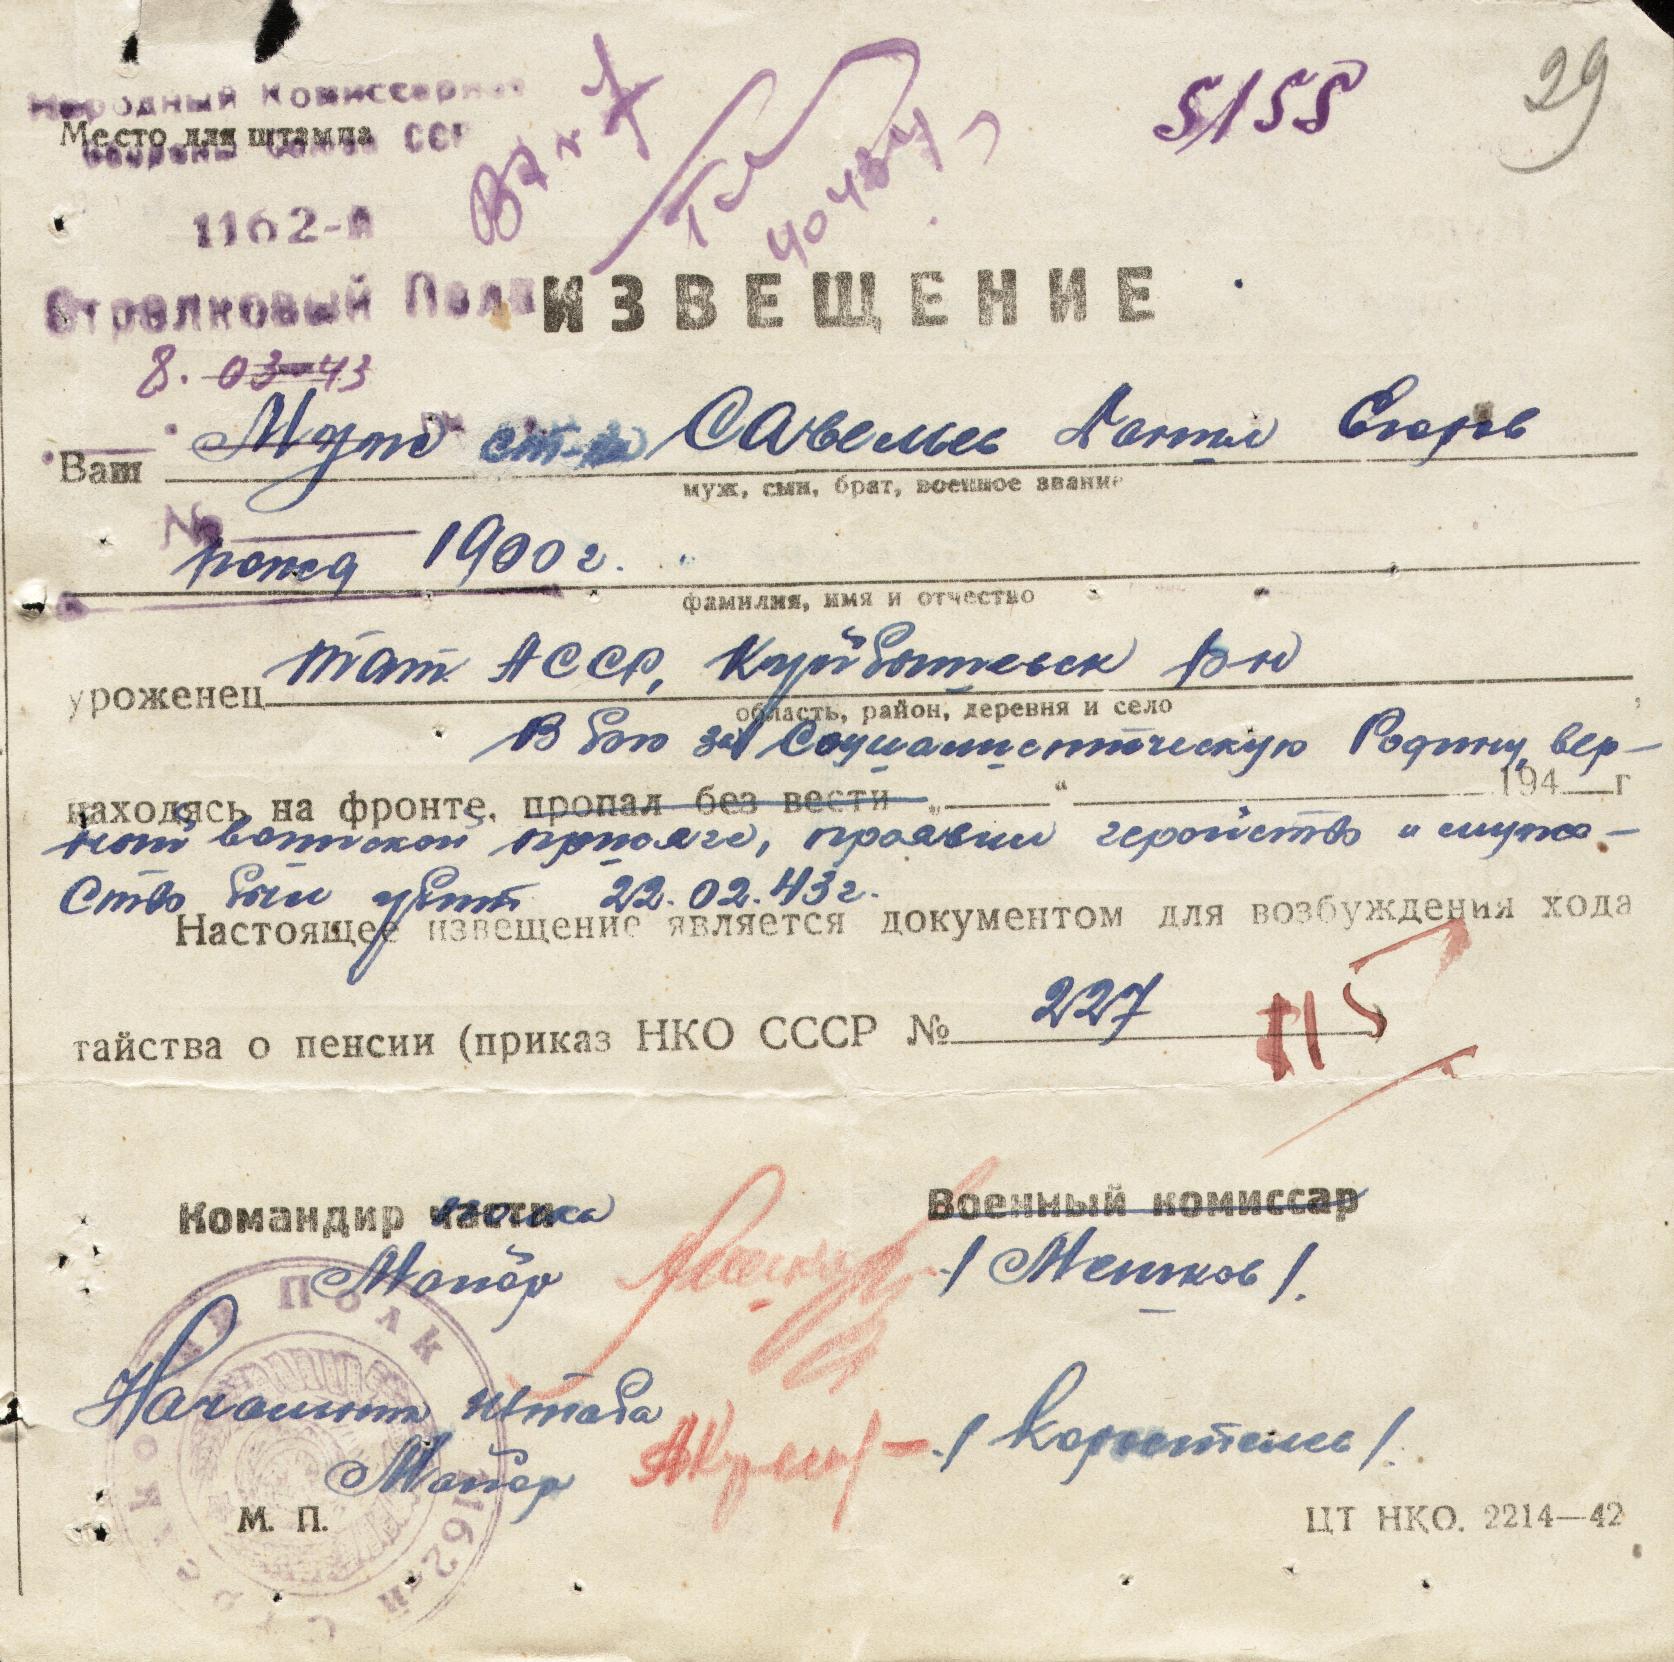 29
5/155
Народный Комиссариат
Место для штампа
Обороны Союза ССР
404284
1162-й
Стрелковый Полк
ИЗВЕЩЕНИЕ
8. 03-43
Ваш Муж ст-на Савельев Данил Егоров
муж, сын, брат, военное звание
№
рожд 1900 г.
фамилия, имя и отчество
уроженец Тат. АССР, Куйбышевск р-н
область, район, деревня и село
В бою за Социалистическую Родину, вер-
находясь на фронте, пропал без вести „ “ 194 г
ный воинской присяге, проявив геройство и муже-
ство был убит 22.02.43 г.
Настоящее извещение является документом для возбуждения хода
тайства о пенсии (приказ НКО СССР № 227
Командир части полка Военный комиссар
Майор / Мешков /.
Начальник штаба
Майор / Коростелев /.
М. П.
ЦТ НКО. 2214—42
1162-й Стрелковый Полк